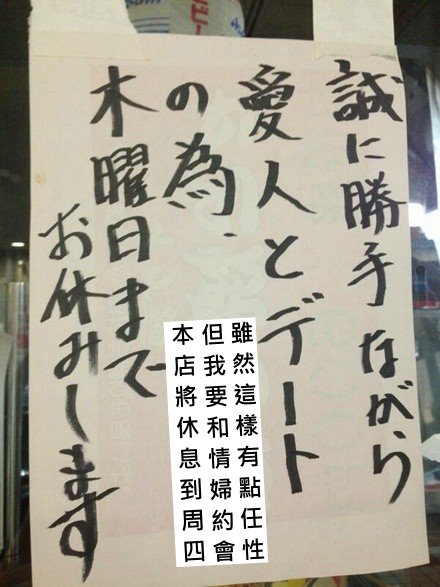 誠に勝手ながら
愛人とデート
の為、
木曜日まで
お休みします
雖然這樣有點任性
但我要和情婦約會
本店將休息到周四